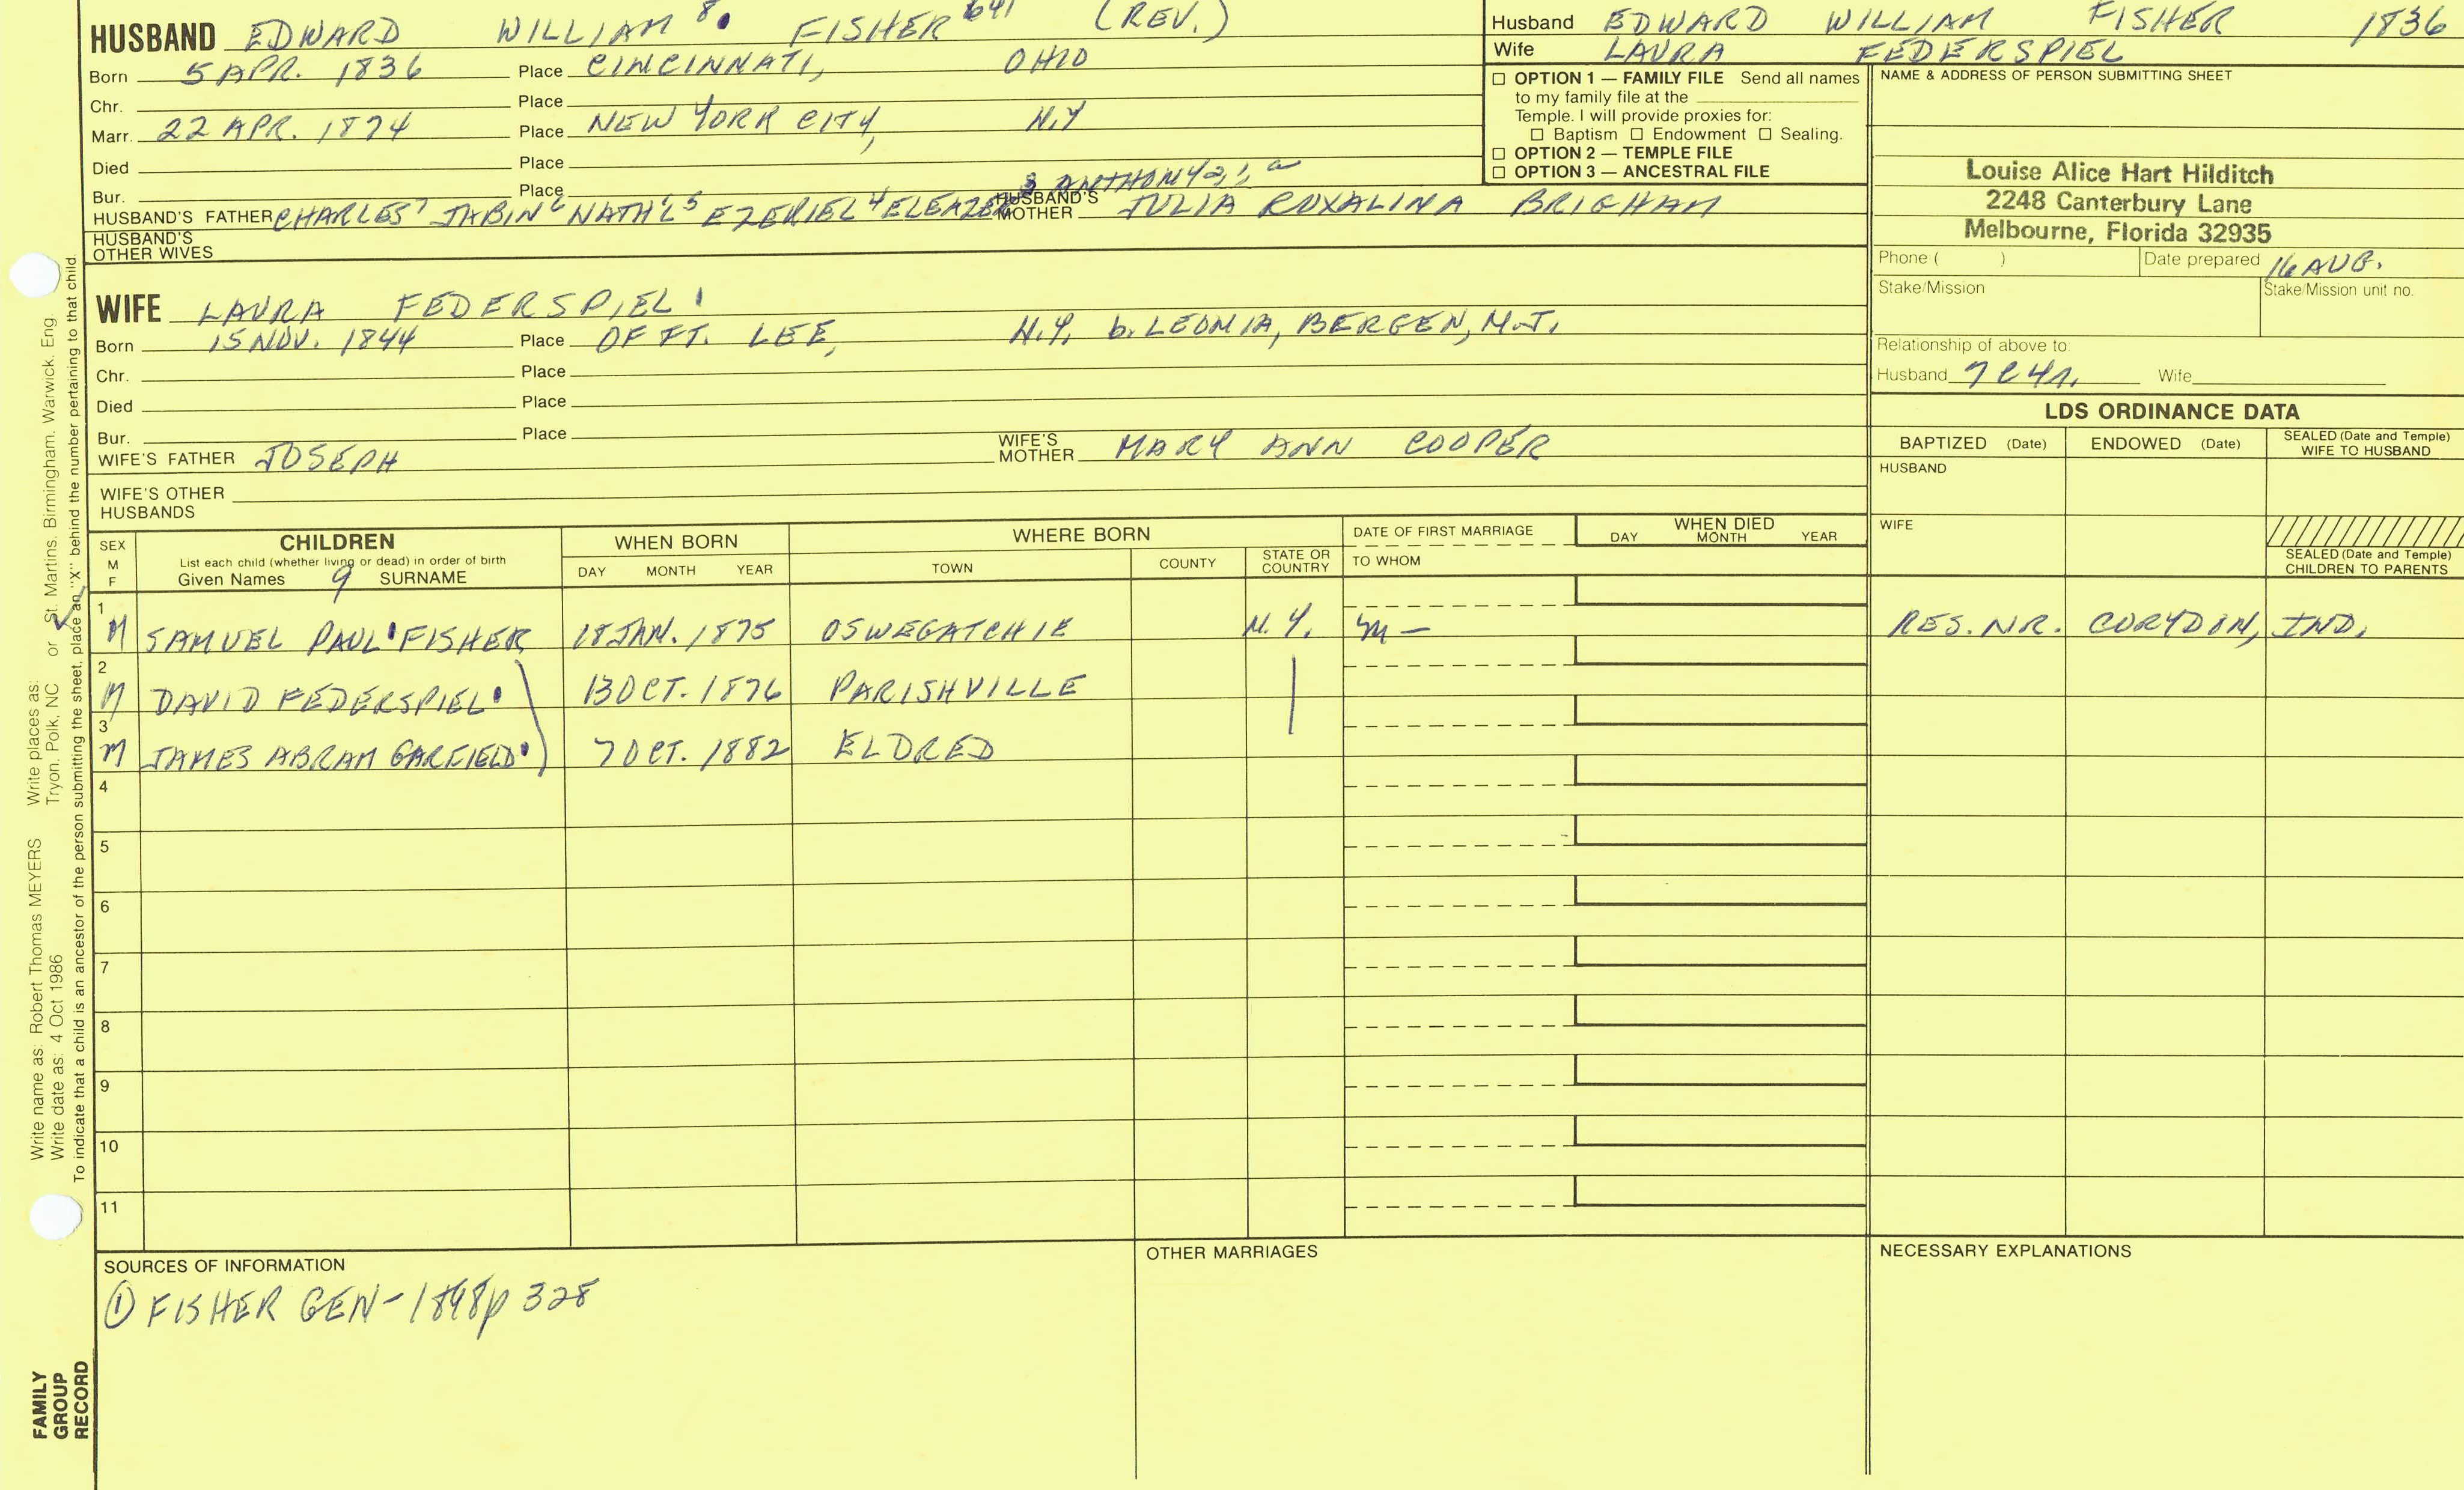 HUSBAND EDWARD WILLIAM 8. FISHER 641 (REV.)
Born 5 APR. 1836 Place CINCINNATI, OHIO
Chr. Place
Marr. 22 APR. 1874 Place NEW YORK CITY, N.Y
Died Place
Bur. Place
3 ANTHONY 2, 1, a
HUSBAND'S FATHER CHARLES 7 JABIN 6 NATH'L 5 EZERIEL 4 ELEAZER HUSBAND'S MOTHER JULIA ROXALINA BRIGHAM
HUSBAND'S OTHER WIVES
Husband EDWARD WILLIAM FISHER 1836
Wife LAURA FEDERSPIEL
☐ OPTION 1 — FAMILY FILE Send all names
to my family file at the
Temple. I will provide proxies for:
☐ Baptism ☐ Endowment ☐ Sealing.
☐ OPTION 2 — TEMPLE FILE
☐ OPTION 3 — ANCESTRAL FILE
NAME & ADDRESS OF PERSON SUBMITTING SHEET
Louise Alice Hart Hilditch
2248 Canterbury Lane
Melbourne, Florida 32935
Phone ( ) Date prepared 16 AUG.
Stake/Mission Stake/Mission unit no.
Relationship of above to:
Husband 7C4R. Wife
WIFE LAURA FEDERSPIEL 1
Born 15 NOV. 1844 Place OF FT. LEE, N.Y. b. LEONIA, BERGEN, N.J.
Chr. Place
Died Place
Bur. Place
WIFE'S FATHER JOSEPH WIFE'S MOTHER MARY ANN COOPER
WIFE'S OTHER HUSBANDS
LDS ORDINANCE DATA
BAPTIZED (Date) ENDOWED (Date) SEALED (Date and Temple) WIFE TO HUSBAND
HUSBAND
WIFE
SEALED (Date and Temple) CHILDREN TO PARENTS
SEX M F CHILDREN WHEN BORN WHERE BORN DATE OF FIRST MARRIAGE WHEN DIED
List each child (whether living or dead) in order of birth
Given Names 9 SURNAME DAY MONTH YEAR TOWN COUNTY STATE OR COUNTRY TO WHOM DAY MONTH YEAR
1 M SAMUEL PAUL FISHER 18 JAN. 1875 OSWEGATCHIE N.Y. m – RES. NR. CORYDON, IND.
2 M DAVID FEDERSPIEL 13 OCT. 1876 PARISHVILLE
3 M JAMES ABRAM GARFIELD 7 OCT. 1882 ELDRED
4
5
6
7
8
9
10
11
SOURCES OF INFORMATION
① FISHER GEN - 1898 p 328
OTHER MARRIAGES
NECESSARY EXPLANATIONS
Write name as: Robert Thomas MEYERS Write places as: 
Write date as: 4 Oct 1986 Tryon, Polk, NC or St. Martins, Birmingham, Warwick, Eng
To indicate that a child is an ancestor of the person submitting the sheet, place an "X" behind the number pertaining to that child.
FAMILY
GROUP
RECORD